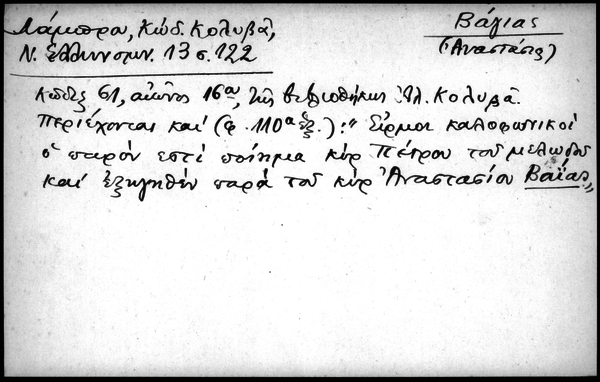 Λάμπρα, Κώδ. Κολυβᾶ,
Ν. Ἑλληνομν. 13 σ. 122
Βάγιας
(Ἀναστάσιος)
Κῶδιξ 61, αἰῶνος 16ου, τῆς βιβλιοθήκης Ἀλ. Κολυβᾶ.
Περιέχονται καὶ (φ. 110α ἑξ.): "Εἱρμοὶ καλοφωνικοὶ
ὁ παρὸν ἐστὶ ποίημα κὺρ Πέτρου τοῦ μελωδοῦ
καὶ ἐξηγηθὲν παρὰ τοῦ κὺρ Ἀναστασίου Βάϊας"